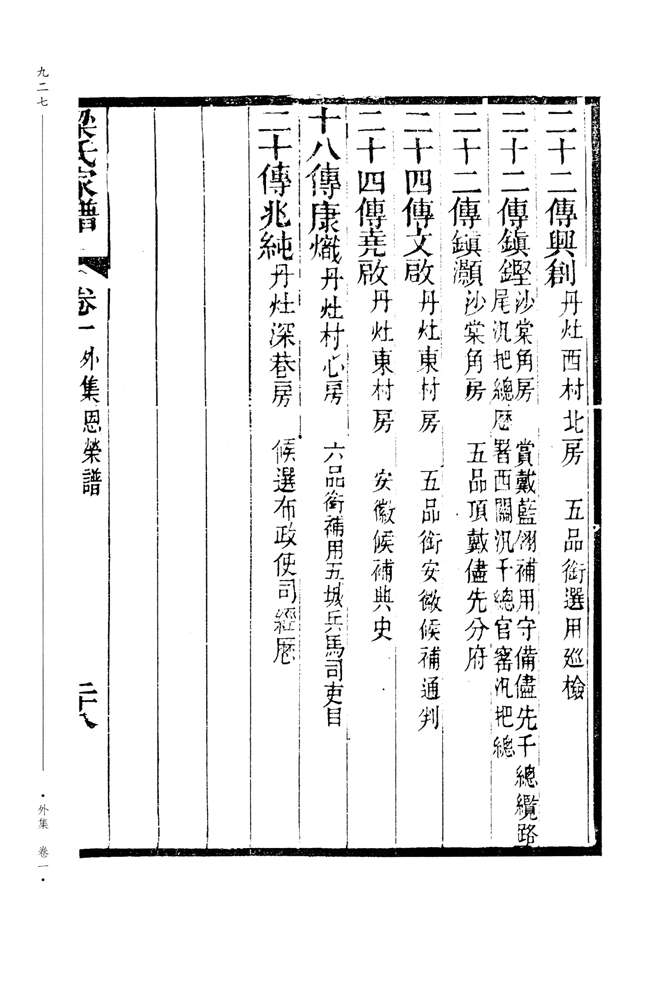 二十二傳興創 丹灶西村北房 五品銜選用巡檢
二十二傳鎮鏗 沙棠角房 賞戴藍翎補用守備儘先千總纜路
尾汛把總歷署西關汛千總官窰汛把總
二十二傳鎮灝 沙棠角房 五品頂戴儘先分府
二十四傳文啟 丹灶東村房 五品銜安徽候補通判
二十四傳堯啟 丹灶東村房 安徽候補典史
十八傳康熾 丹灶村心房 六品銜補用五城兵馬司吏目
二十傳兆純 丹灶深巷房 候選布政使司經歷
梁氏家譜 卷一 外集恩榮譜 二十八
九二七
·外集 卷一·